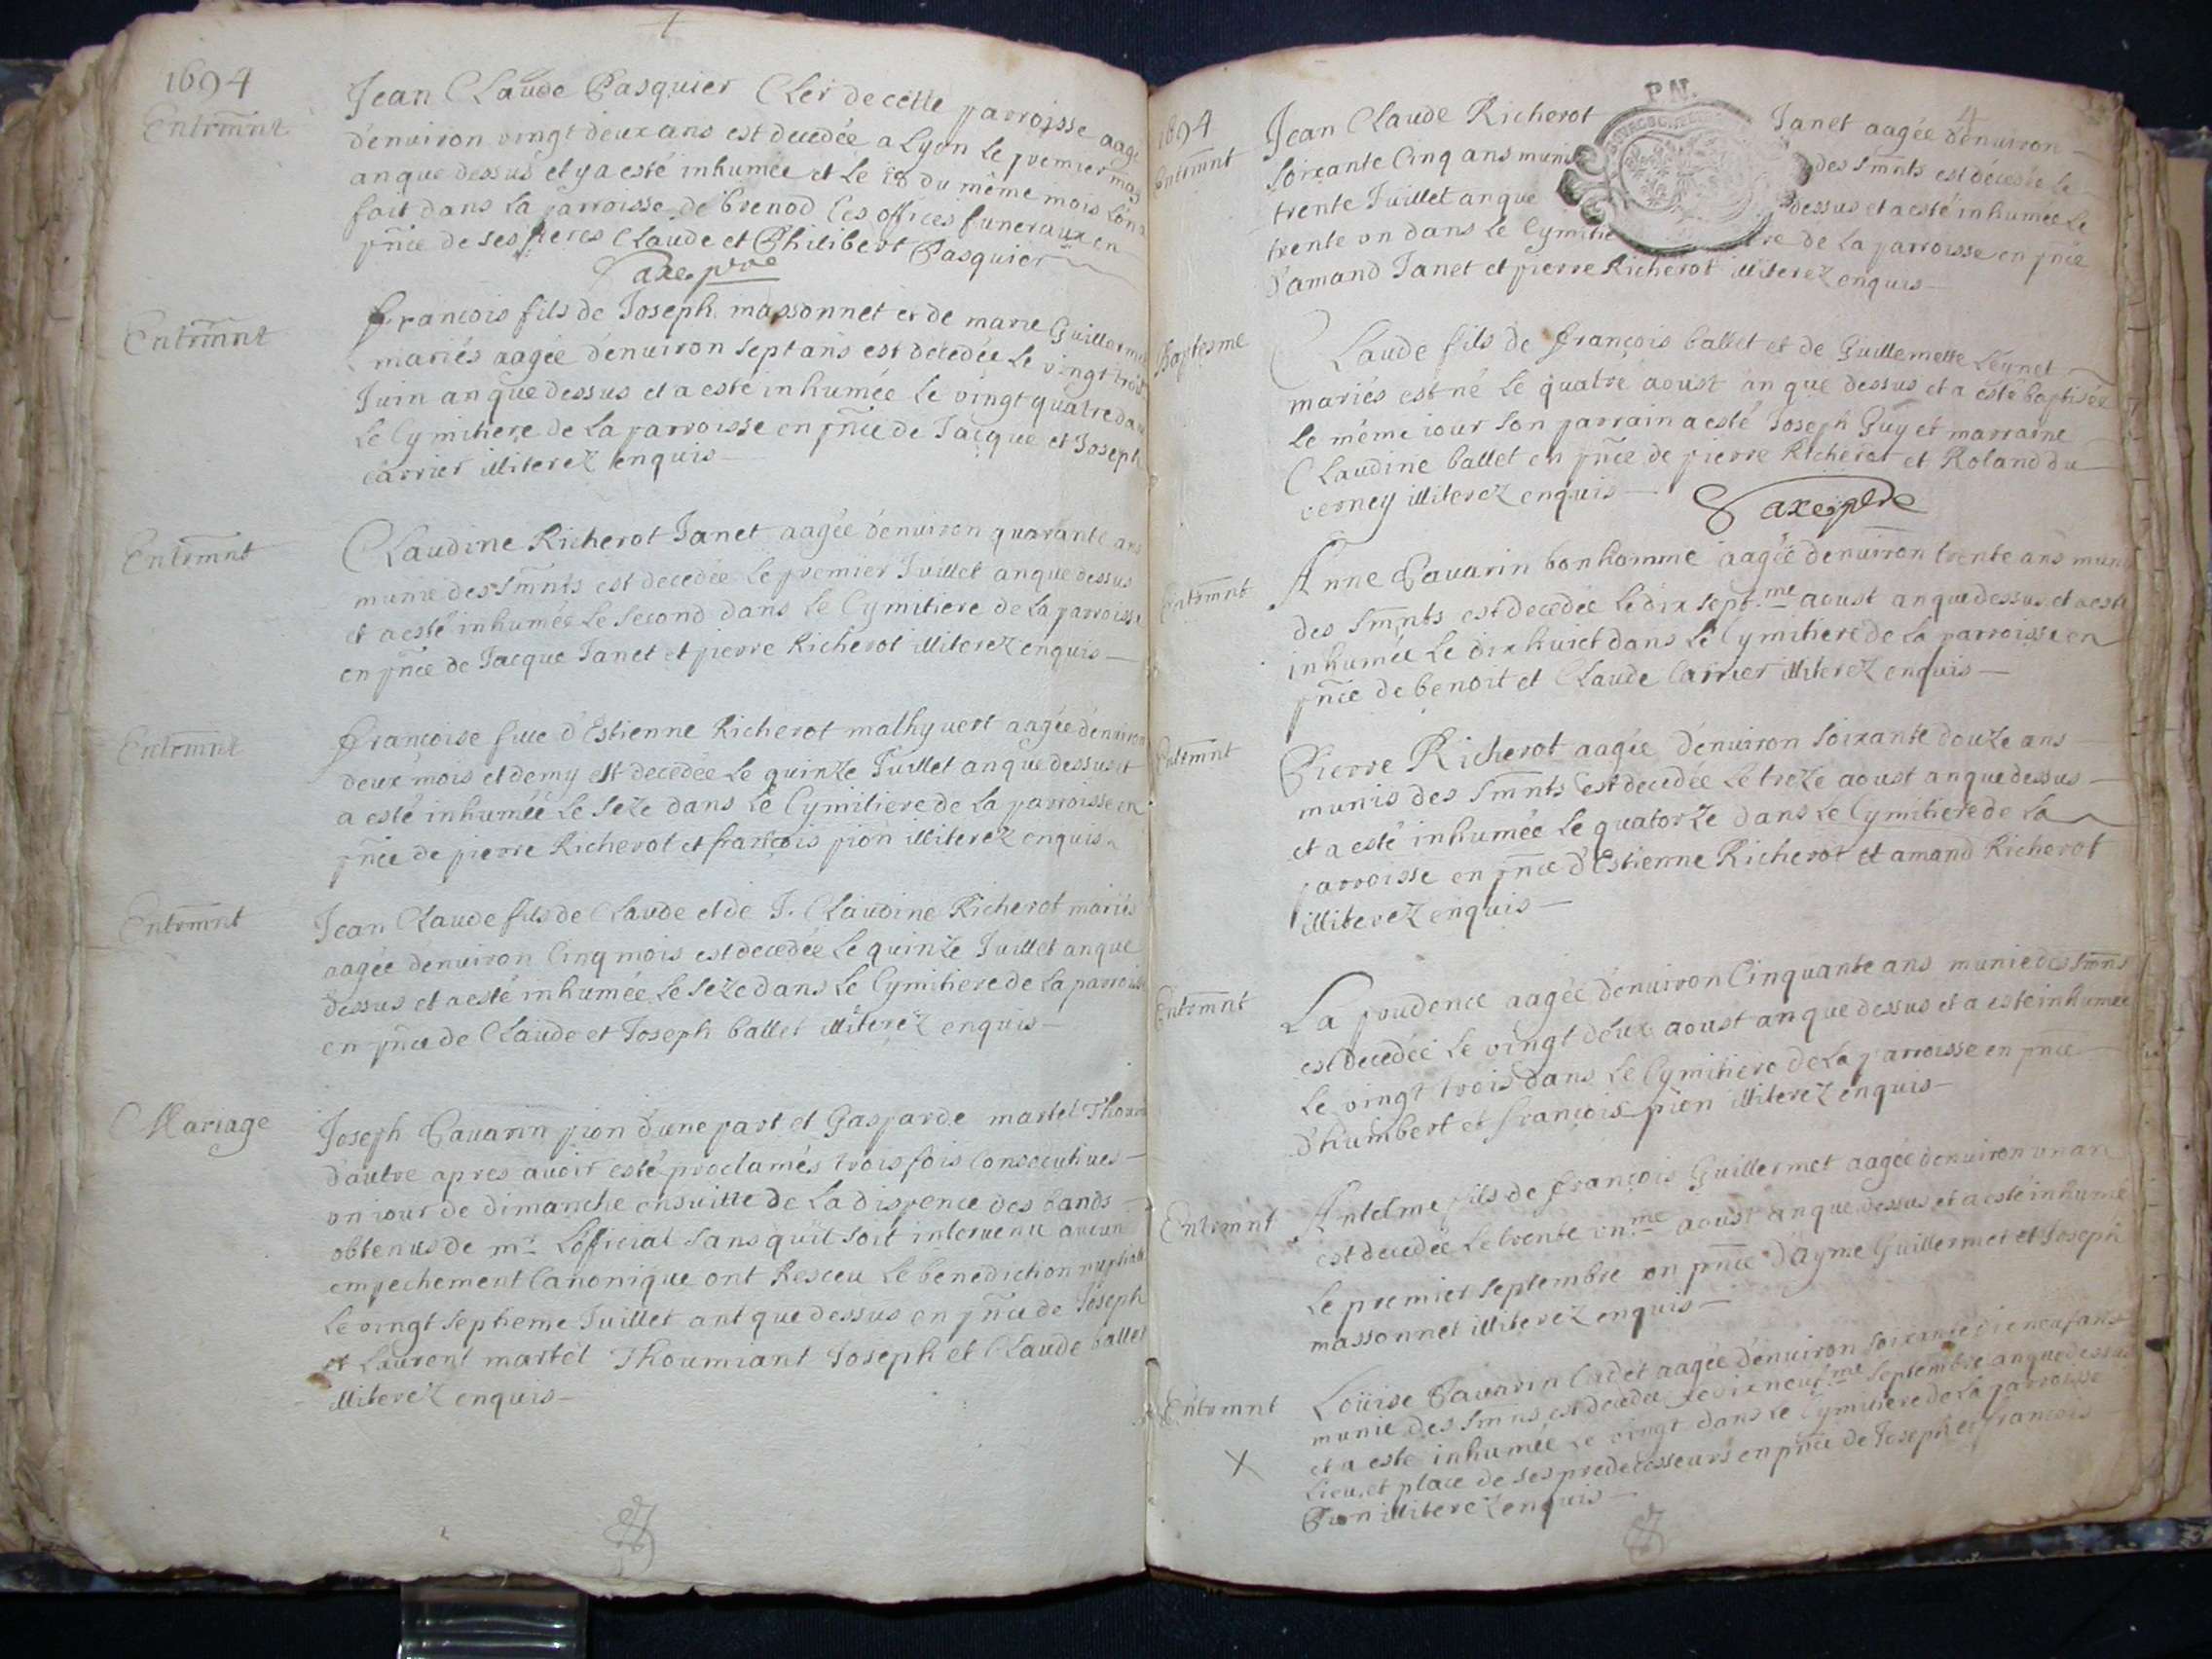 1694
Entrm̃nt
Jean Claude Pasquier Cler de cette parroisse aagé
d'enuiron vingt deux ans est decedée a Lyon le premier may
an que dessus et y a esté inhumée et le 18 du même mois L'on a
fait dans la parroisse de brenod les offices funeraux en
pñce de ses freres Claude et Philibert Pasquier
Saxe, ptre
Entrm̃nt
francois fils de Joseph massonnet et de marie Guillermet
mariés aagée d'enuiron sept ans est decedée le vingt trois
Juin an que dessus et a esté inhumée le vingt quatre dans
le Cymitiere de la parroisse en pñce de Jacque et Joseph
carrier illiterez enquis
Entrm̃nt
Claudine Richerot Janet aagée d'enuiron quarante ans
munie des Sm̃nts est decedée le premier Juillet an que dessus
et a esté inhumée le second dans le Cymitiere de la parroisse
en pñce de Jacque Janet et pierre Richerot illiterez enquis
Entrm̃nt
françoise fille d'Estienne Richerot mathy vert aagée d'enuiron
deux mois et demy est decedée le quinze Juillet an que dessus et
a esté inhumée le seze dans le Cymitiere de la parroisse en
pñce de pierre Richerot et françois pion illiterez enquis
Entrm̃nt
Jean Claude fils de Claude et de J. Claudine Richerot mariés
aagée denuiron Cinq mois est decedée le quinze Juillet an que
dessus et a esté inhumée le seze dans le Cymitiere de la parroisse
en pñce de Claude et Joseph ballet illiterez enquis
Mariage
Joseph Pauarin pion d'une part et Gasparde martel
d'autre apres auoir esté proclamés trois fois consecutiues
en iour de dimanche ensuitte de la dispence des bands
obtenus de mr L'official sans qu'il soit interuenu aucun
empechement Canonique ont Resceu le benediction nuptiale
le vingt septieme Juillet ant que dessus en pñce de Joseph
et Laurent martel Thoumiant Joseph et Claude ballet
illiterez enquis
P.N.
4
1694
Entrm̃nt
Jean Claude Richerot Janet aagée d'enuiron
soixante Cinq ans munis des Sm̃nts est décedée le
trente Juillet an que dessus et a esté inhumée le
trente vn dans le Cymitiere de la parroisse en pñce
d'amand Janet et pierre Richerot illiterez enquis
Baptesme
Claude fils de françois ballet et de Guillemette
mariés est né le quatre aoust an que dessus et a esté baptisée
le même iour son parrain a esté Joseph Guy et marraine
Claudine ballet en pñce de pierre Richerot et Roland du
verney illiterez enquis
Saxe, ptre
Entrm̃nt
Anne Pauarin bonhomme aagée denuiron trente ans munie
des Sm̃nts est decedée le dix sept.me aoust an que dessus et a esté
inhumée le dix huict dans le Cymitiere de la parroisse en
pñce de benoit et Claude Carrier illiterez enquis
Entrm̃nt
Pierre Richerot aagée d'enuiron soixante douze ans
munis des Sm̃nts est decedée le treze aoust an que dessus
et a esté inhumée le quatorze dans le Cymitiere de la
parroisse en pñce d'Estienne Richerot et amand Richerot
illiterez enquis
Entrm̃nt
La prudence aagée d'enuiron Cinquante ans munie des Sm̃nts
est decedée le vingt deux aoust an que dessus et a esté inhumée
le vingt trois dans le Cymitiere de la parroisse en pñce
d'humbert et françois pion illiterez enquis
Entrm̃nt
Antelme fils de françois Guillermet aagée denuiron vn an
est decedée le trente vn.me aoust an que dessus et a esté inhumé
le premier septembre en pñce d'ayme Guillermet et Joseph
massonnet illiterez enquis
Entrm̃nt
X
Loüise Pauarin Cadet aagée d'enuiron soixante dix neuf ans
munie des Sm̃nts est decedée le dix neuf.me septembre an que dessus
et a esté inhumée le vingt dans le Cymitiere de la parroisse
Lieu et place de ses predecesseurs en pñce de Joseph et françois
Pion illiterez enquis